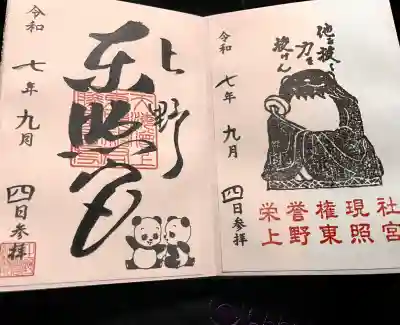 上野
東照宮
令和七年九月四日参拝
他を抜く
力を
授けん
令和七年九月四日参拝
栄誉権現社
上野東照宮